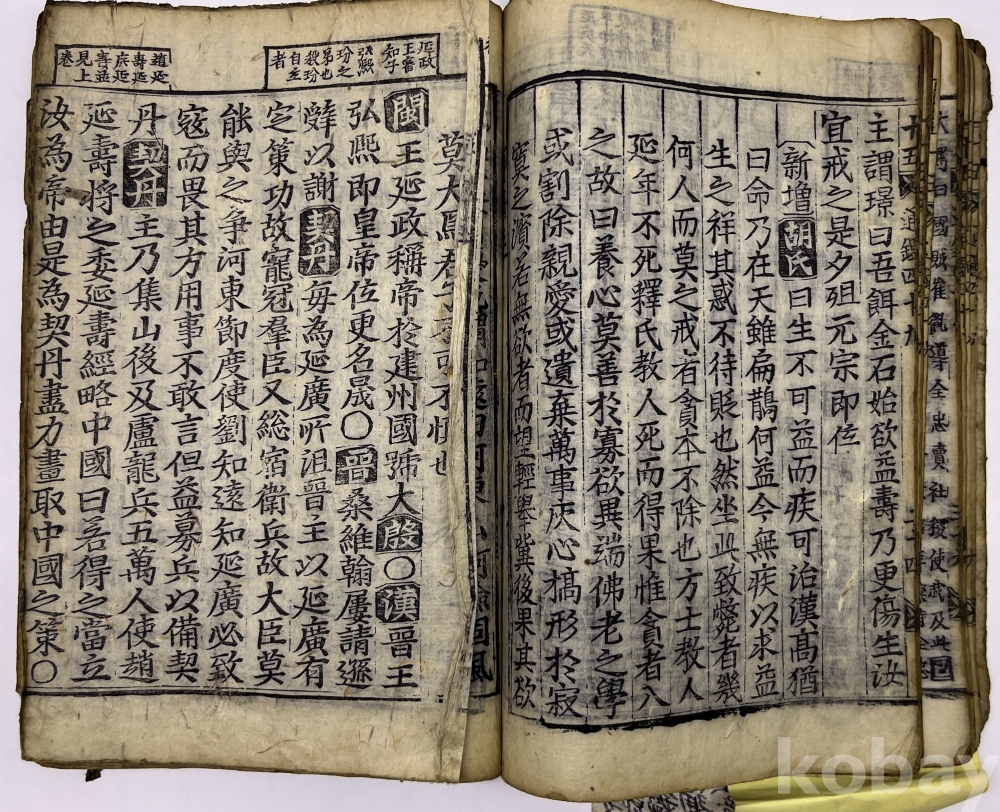 主謂璟曰吾餌金石始欲益壽乃更傷生汝
宜戒之是夕殂元宗即位
新增胡氏曰生不可益而疾可治漢高猶
曰命乃在天雖扁鵲何益今無疾以求益
生之祥其惑不待貶也然坐此致斃者幾
何人而莫之戒者貪本不除也方士教人
延年不死釋氏教人死而得果惟貪者入
之故曰養心莫善於寡欲異端佛老之學
或割除親愛或遺棄萬事灰心槁形於寂
寞之濱若無欲者而望輕舉冀後果其欲
莫大焉君可不慎也
延政
王審
知子
弘熈
玢之
弟也
殺玢
自立
者
閩王延政稱帝於建州國號大殷○漢晉王
弘熈即皇帝位更名晟○晉桑維翰屢請遜
辭以謝契丹每為延廣所沮晉主以延廣有
定策功故寵冠羣臣又總宿衛兵故大臣莫
能與之爭河東節度使劉知遠知延廣必致
寇而畏其方用事不敢言但益募兵以備契
趙延
壽延
延
壽並
見上
卷
丹契丹主乃集山後及盧龍兵五萬人使趙
延壽將之委延壽經略中國曰若得之當立
汝為帝由是為契丹盡力畫取中國之策○
kobay